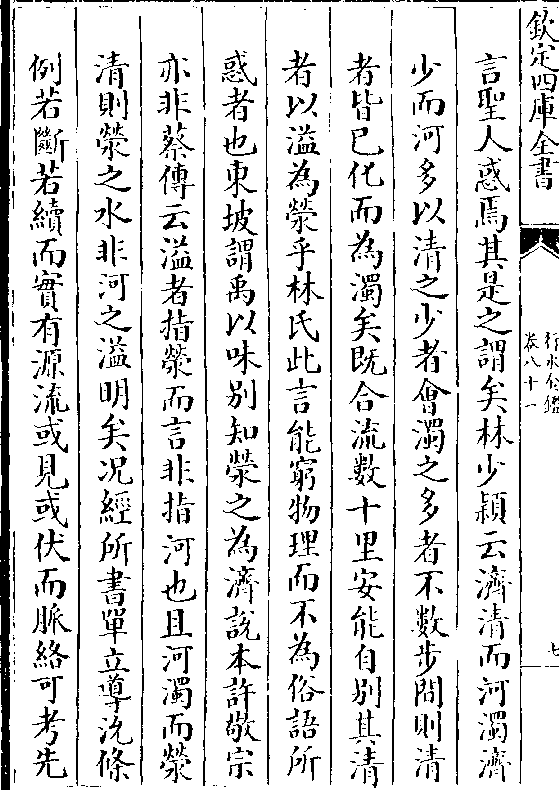 欽定四庫全書
行水金鑑
卷八十一
七
言聖人惑焉其是之謂矣林少穎云濟清而河濁濟
少而河多以清之少者會濁之多者不數步間則清
者皆已化而為濁矣既合流數十里安能自別其清
者以溢為滎乎林氏此言能窮物理而不為俗語所
惑者也東坡謂禹以味別知滎之為濟說本許敬宗
亦非蔡傳云溢者指滎而言非指河也且河濁而滎
清則滎之水非河之溢明矣况經所書單立導沇條
例若斷若續而實有源流或見或伏而脈絡可考先